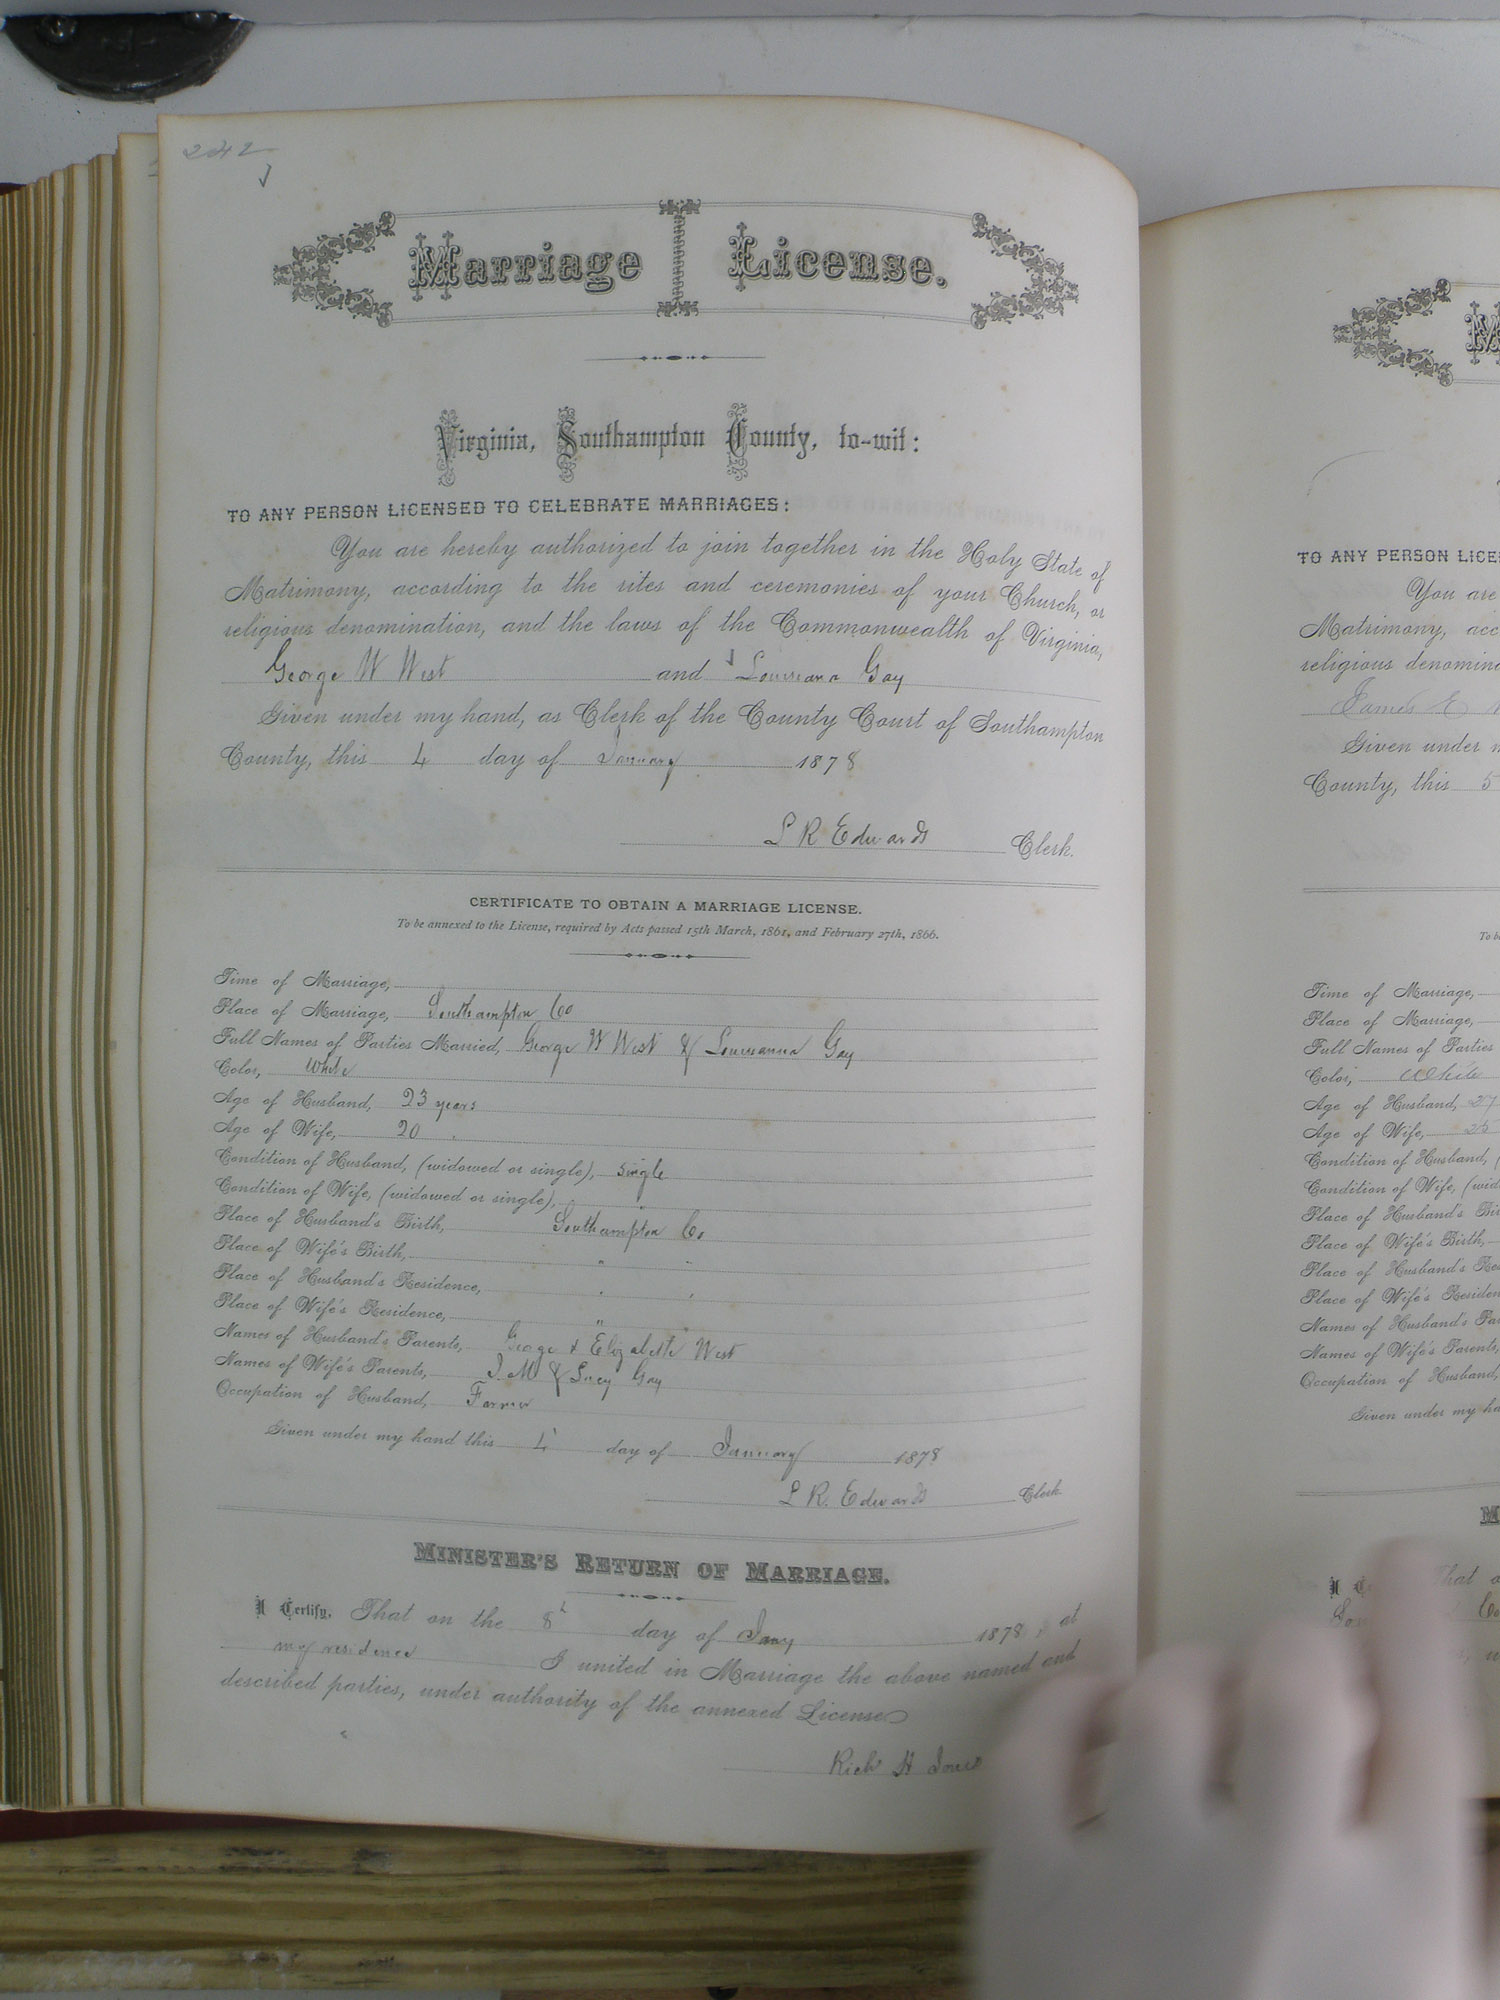 242
Marriage License.
Virginia, Southampton County, to-wit:
TO ANY PERSON LICENSED TO CELEBRATE MARRIAGES:
You are hereby authorized to join together in the Holy State of
Matrimony, according to the rites and ceremonies of your Church, or
religious denomination, and the laws of the Commonwealth of Virginia,
George W West and Louisiana Gay
Given under my hand, as Clerk of the County Court of Southampton
County, this 4 day of January 1878
L R Edwards Clerk.
CERTIFICATE TO OBTAIN A MARRIAGE LICENSE.
To be annexed to the License, required by Acts passed 15th March, 1861, and February 27th, 1866.
Time of Marriage,
Place of Marriage, Southampton Co
Full Names of Parties Married, George W West & Louisianna Gay
Color, White
Age of Husband, 23 years
Age of Wife, 20
Condition of Husband, (widowed or single), single
Condition of Wife, (widowed or single), "
Place of Husband's Birth, Southampton Co
Place of Wife's Birth, " "
Place of Husband's Residence, " "
Place of Wife's Residence, " "
Names of Husband's Parents, George & Elizabeth West
Names of Wife's Parents, J. M & Lucy Gay
Occupation of Husband, Farmer
Given under my hand this 4 day of January 1878
L R. Edwards Clerk.
MINISTER'S RETURN OF MARRIAGE.
I Certify, That on the 8 day of Jany 1878, at
my residence I united in Marriage the above named and
described parties, under authority of the annexed License
Rich H Jones
M
TO ANY PERSON LICE
You are
Matrimony, acc
religious denomina
James E
Given under m
County, this 5
To be
Time of Marriage,
Place of Marriage,
Full Names of Parties
Color, White
Age of Husband, 27
Age of Wife, 25
Condition of Husband, (
Condition of Wife, (wid
Place of Husband's Bir
Place of Wife's Birth,
Place of Husband's Res
Place of Wife's Residen
Names of Husband's Par
Names of Wife's Parents,
Occupation of Husband,
Given under my ha
M
That o